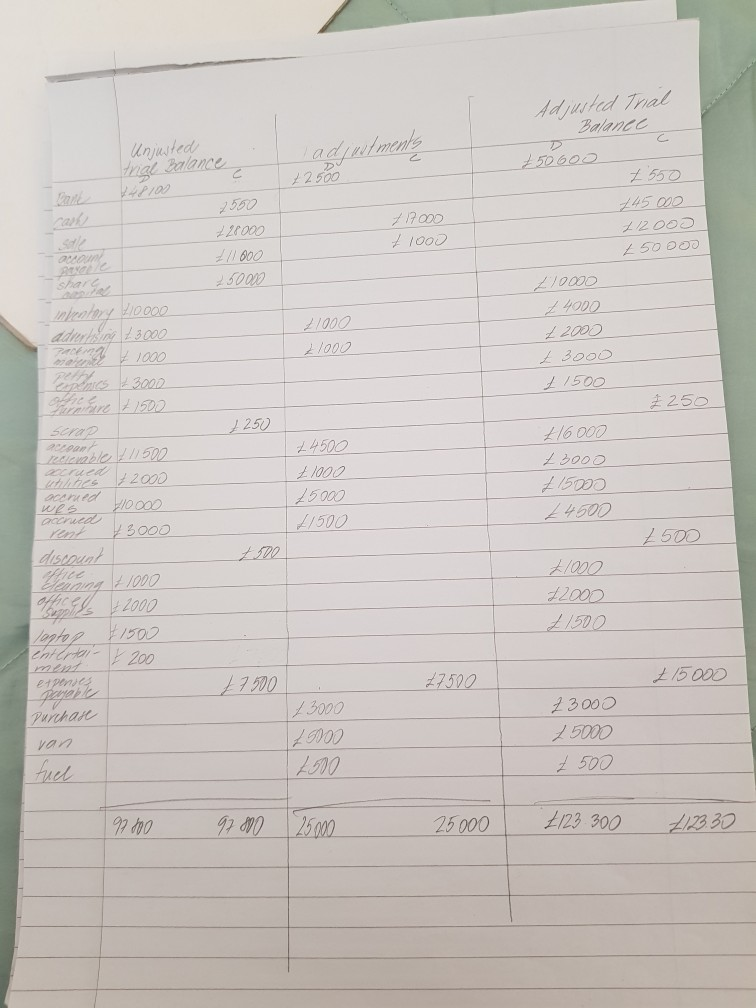 Unjusted
trial Balance
adjustments
Adjusted Trial
Balance
D C D C D C
Bank £48100 £2500 £50600
cash £550 £550
sale £28000 £17000 £45 000
account
payable £11000 £1000 £12000
share
capital £50000 £50000
inventory £10000 £10000
advertising £3000 £1000 £4000
packing
material £1000 £1000 £2000
petty
expenses £3000 £3000
office
furniture £1500 £1500
scrap £250 £250
account
recievable £11500 £4500 £16000
accrued
utilities £2000 £1000 £3000
accrued
£10000 £5000 £15000
accrued
rent £3000 £1500 £4500
discount £500 £500
office
cleaning £1000 £1000
office
supplies £2000 £2000
laptop £1500 £1500
entertai-
ment £200
expenses
payable £7500 £7500 £15000
purchase £3000 £3000
van £5000 £5000
fuel £500 £500
97800 97800 25000 25000 £123 300 £123 30